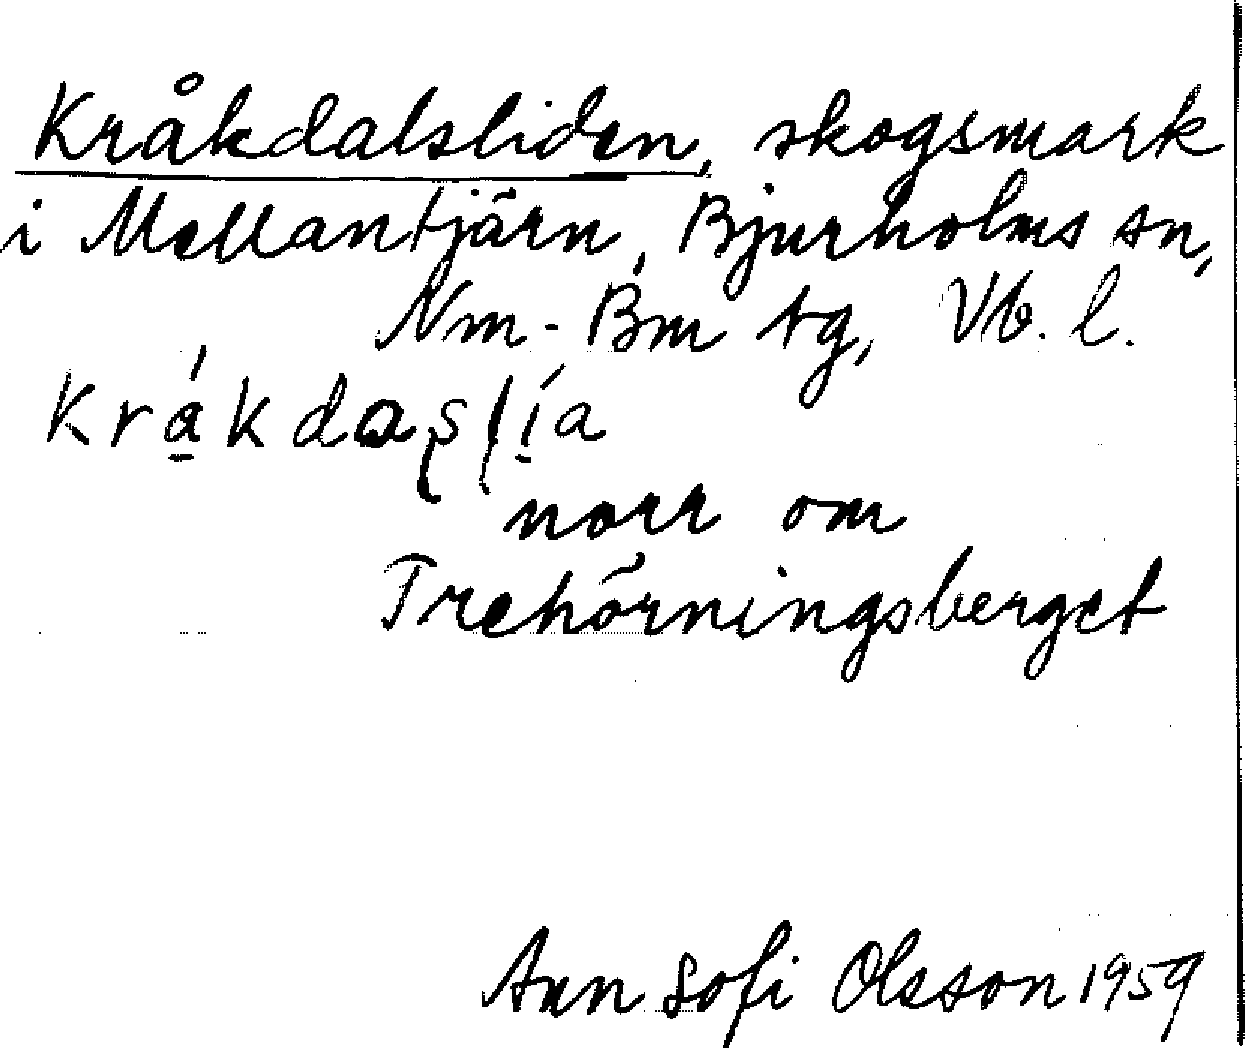 Kråkdalsliden, skogsmark
i Mellantjärn, Bjurholms sn,
Nm-Bm tg, Vb. l.
norr om
Trehörningsberget
Ann Sofi Olsson 1959